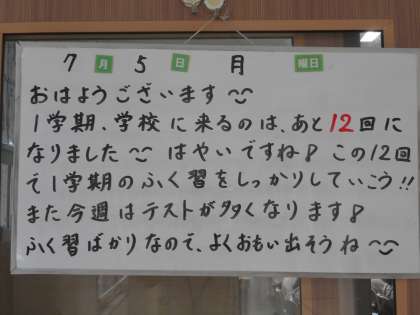 7月5日 月曜日
おはようございます
1学期、学校に来るのは、あと12回に
なりました はやいですね! この12回
で1学期のふく習をしっかりしていこう!!
また今週はテストが多くなります!
ふく習ばかりなので、よくおもい出そうね